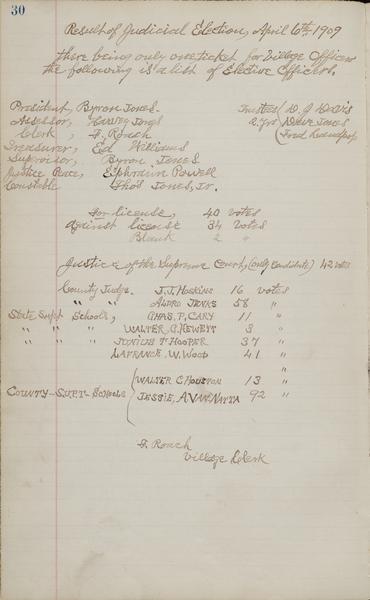 30
Result of Judicial Election, April 6th 1909
there being only one ticket for Village Officers
the following is a list of Elective Officers.
President, Byron Jones. Trustees D. J. Davis
Assessor, Harvey Jones 2 yrs Dave Jones
Clerk, F. Roach (Fred
Treasurer, Ed Williams
Supervisor, Byron Jones
Justice Peace, Ephraim Powell
Constable Thos Jones, Jr.
For license, 40 votes
Against license 34 votes
Blank 2 "
Justice of the Supreme Court, (only Candidate) 42 votes
County Judge. J. J. Hoskins 16 votes
" " Alpro Jenks 58 "
State Supt Schools, Chas. P. Cary 11 "
" " " Walter. G. Hewett 3 "
" " " Junius T Hooper 37 "
Lafrance. W. Wood 41 "
"
(Walter C Houston 13 "
County-Supt-Schools Jessie, A Van Natta 92 "
F. Roach
Village Clerk